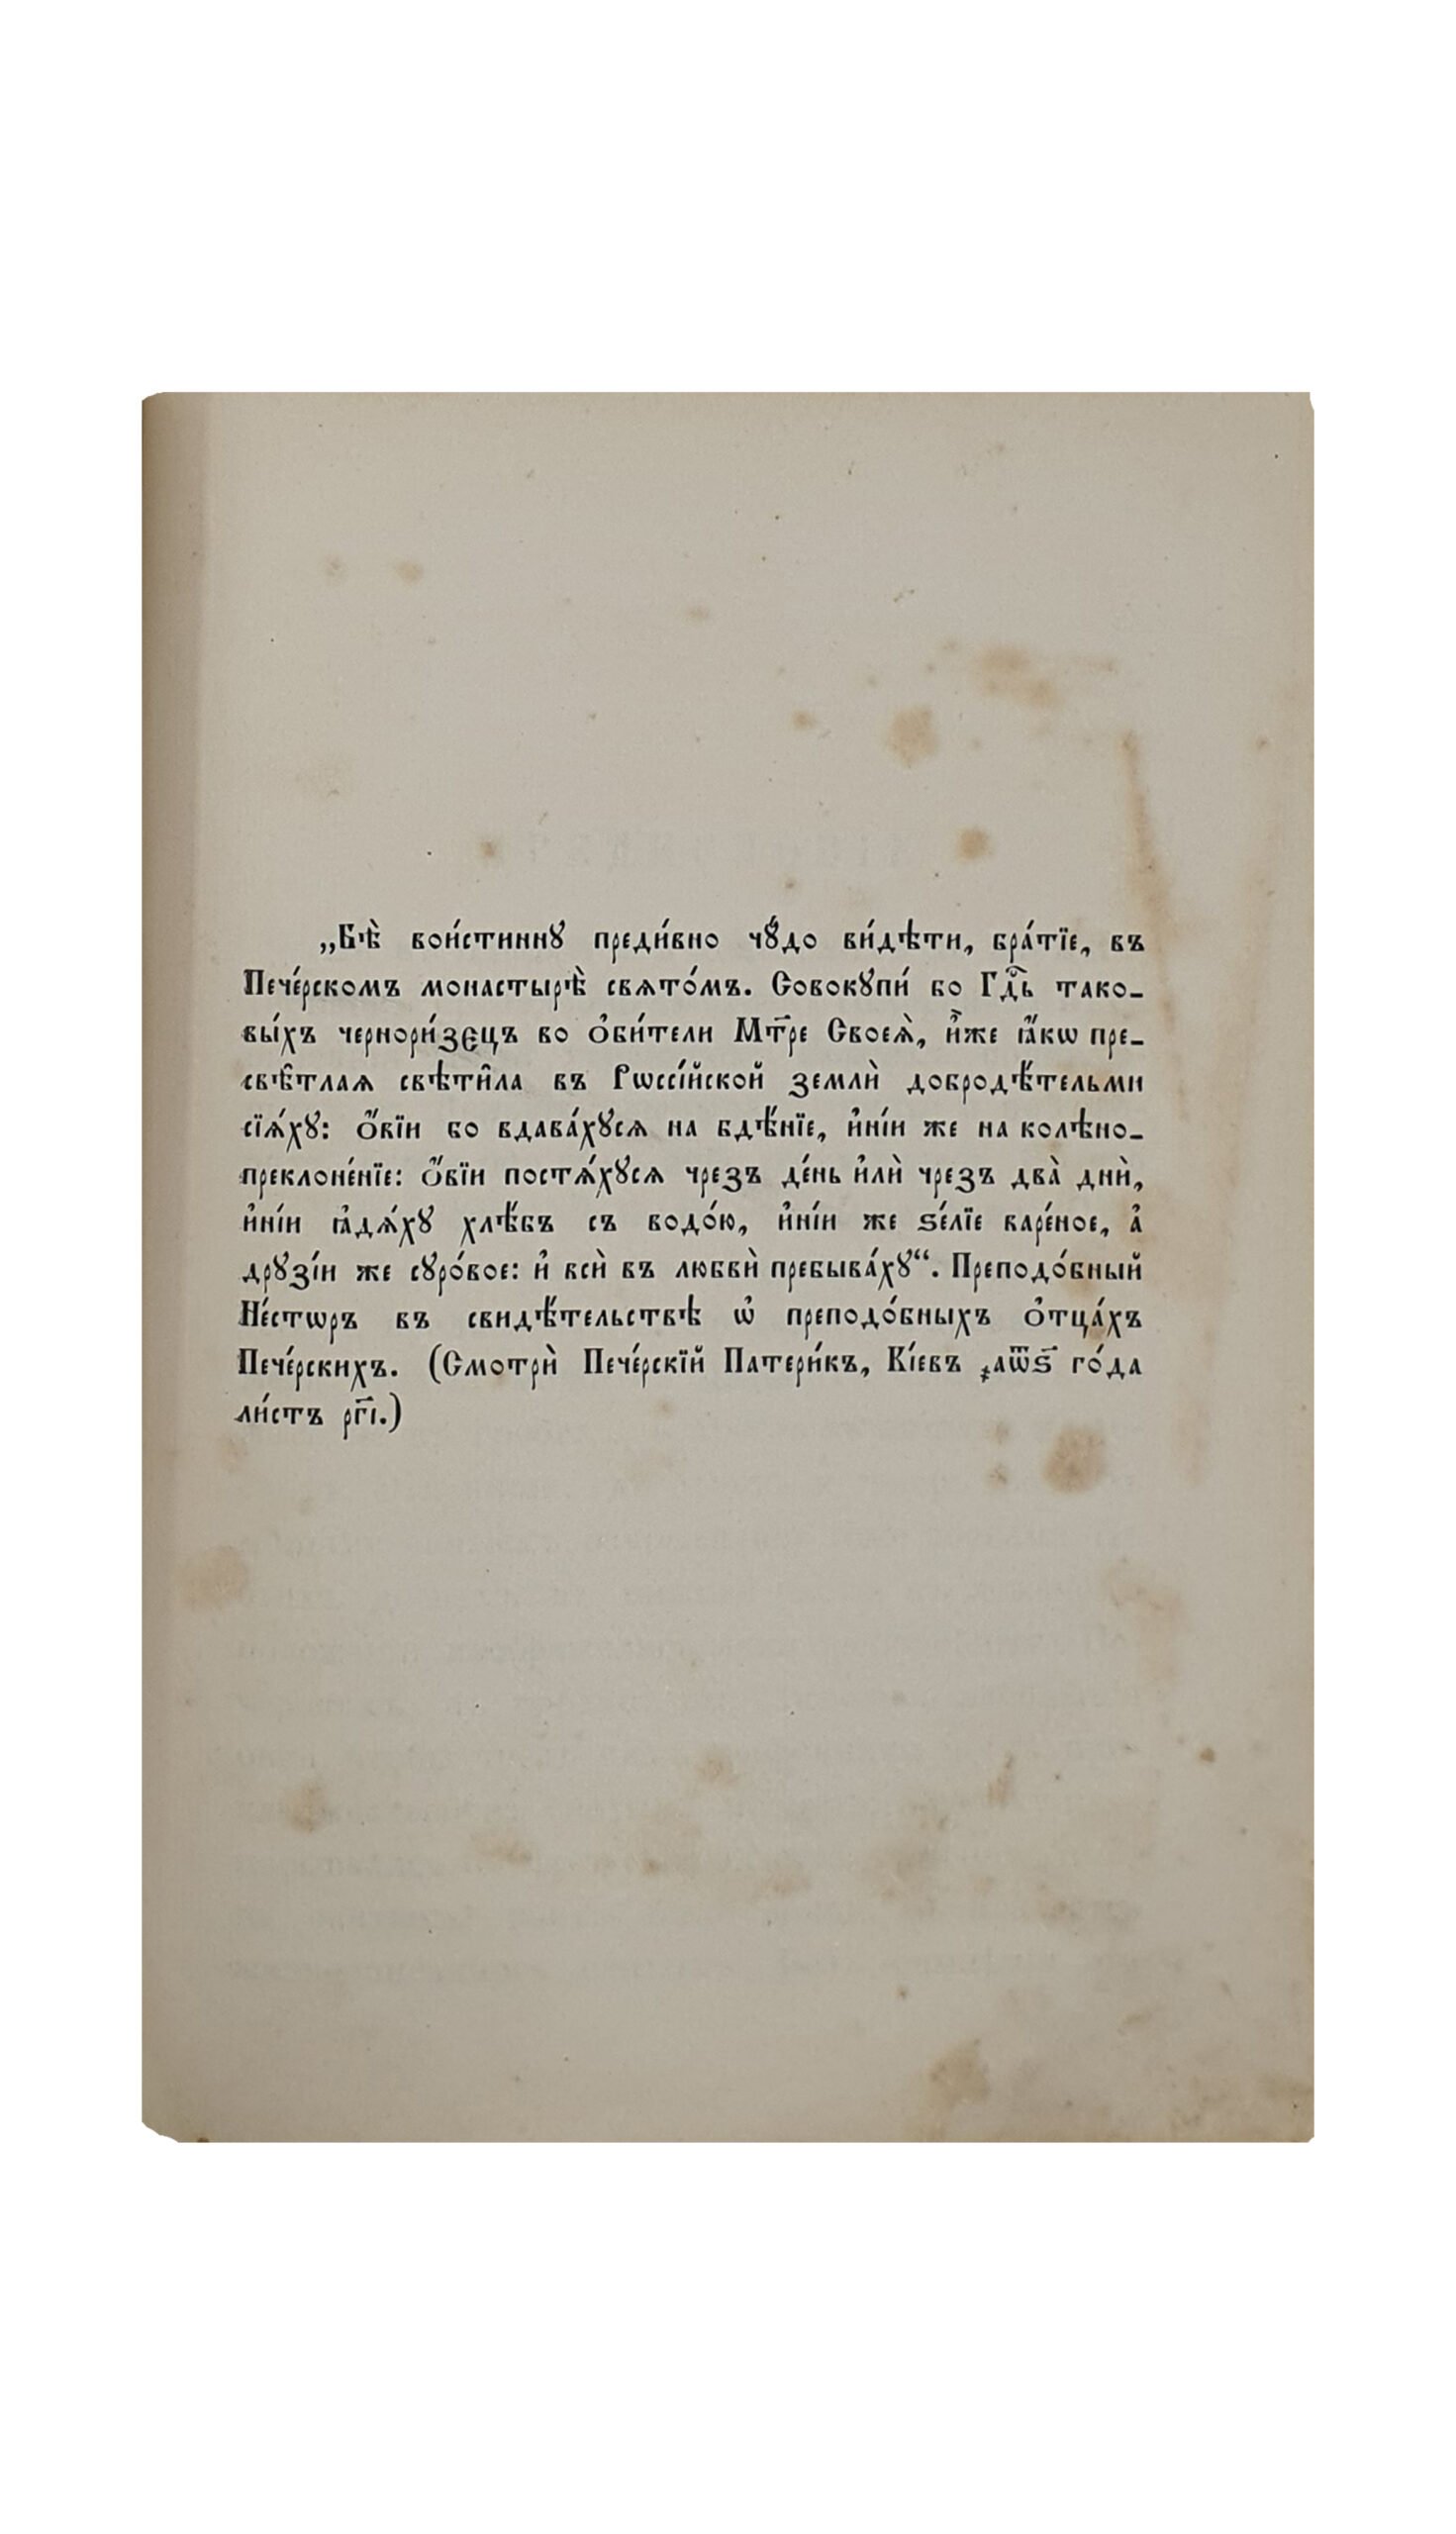 „Бѣ̀ вои́стиннꙋ преди́вно чꙋ́до ви́дѣти, бра́тїе, въ
Пече́рскомъ монастырѣ̀ свято́мъ. Совокꙋпи́ бо Гдⷭ҇ь тако-
вы́хъ чернори́зєцъ во ѻ҆би́тели Мт҃ре Своеѧ̀, и҆̀же ꙗ҆́кѡ пре-
свѣ̑тлаѧ свѣти̑ла въ Рѡссі́йской землѝ добродѣ́тельми
сїѧ́хꙋ: ѻ҆́вїи бо вдава́хꙋсѧ на бдѣ́нїе, и҆ні́и же на колѣно-
преклоне́нїе: ѻ҆́вїи постѧ́хꙋсѧ чрезъ де́нь и҆лѝ чрезъ два̀ днѝ,
и҆ні́и ꙗ҆дѧ́хꙋ хлѣ́бъ съ водо́ю, и҆ні́и же ѕе́лїе варе́ное, а҆
дрꙋзі́и же сꙋро́вое: и҆ всѝ въ любвѝ пребыва́хꙋ“. Преподо́бный
Не́стѡръ въ свидѣ́тельствѣ ѡ҆ преподо́бныхъ ѻ҆тца́хъ
Пече́рскихъ. (Смотрѝ Пече́рскїй Патери́къ, Кі́евъ ҂аѿѕ҃ го́да
ли́стъ рг҃і.)